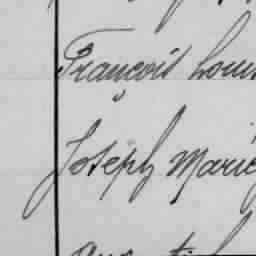 François Louis
Joseph Marie